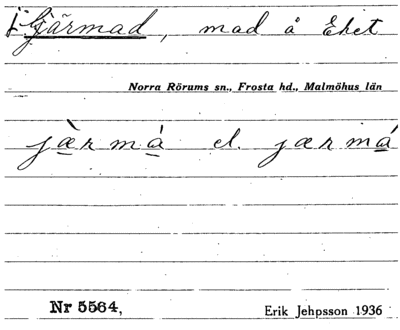 Gjärmad, mad å Eket
Norra Rörums sn., Frosta hd., Malmöhus län
jæ̀rmá el. jærmá
Nr 5564,
Erik Jehpsson 1936